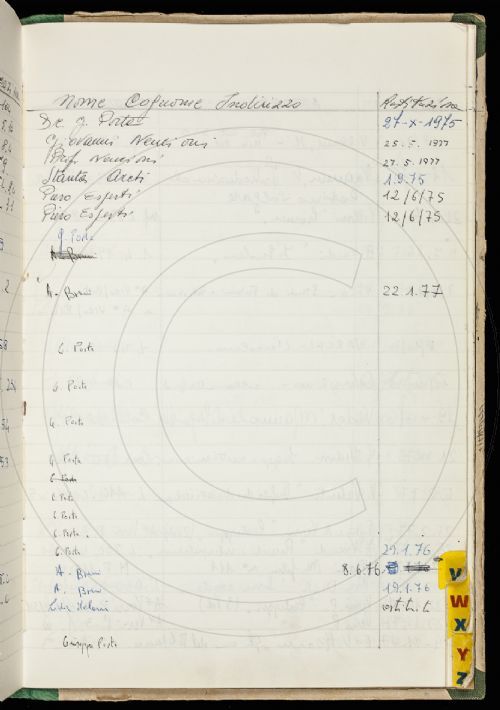 Nome Cognome Indirizzo Restituzione
Dr. G. Porta 27-X-1975
Giovanni Nencioni 25.5.1977
Prof. Nencioni 27.5.1977
1.9.75
Piero 12/6/75
Piero 12/6/75
G. Porta
A. Bruni
A. Bruni 22.1.77
G. Porta
G. Porta
G. Porta
G. Porta
G. Porta
G. Porta
G. Porta
G. Porta
G. Porta 29.1.76
A. Bruni 8.6.76
A. Bruni 19.1.76
Giuseppe Porta
V
W
X
Y
Z